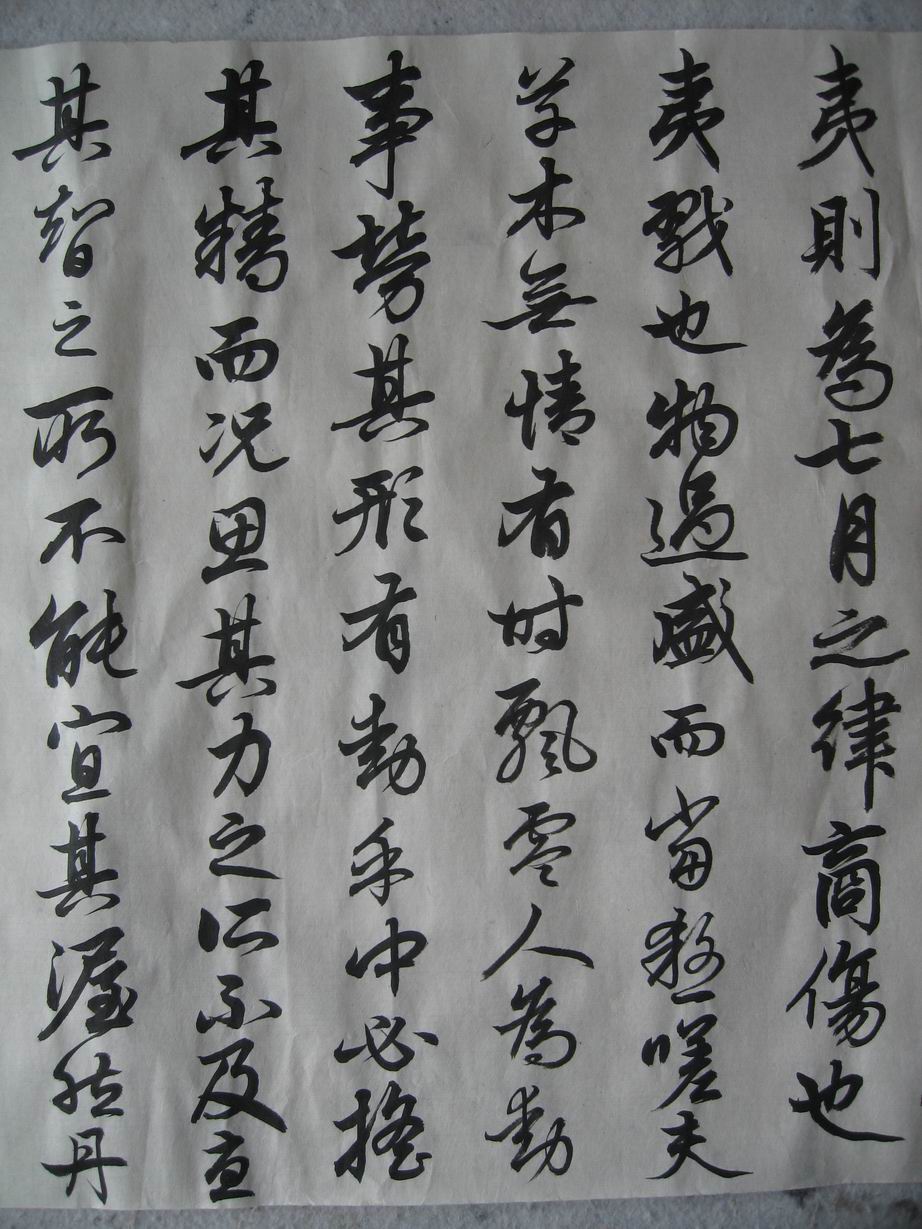 夷則為七月之律商傷也
夷戮也物過盛而當殺嗟夫
草木無情有時飄零人為動
事勞其形有動乎中必搖
其精而况思其力之所不及
其智之所不能宜其渥然丹